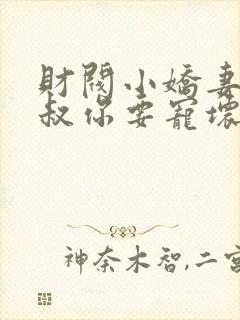 財閥小嬌妻
叔你要寵壞
神奈木智,二宮